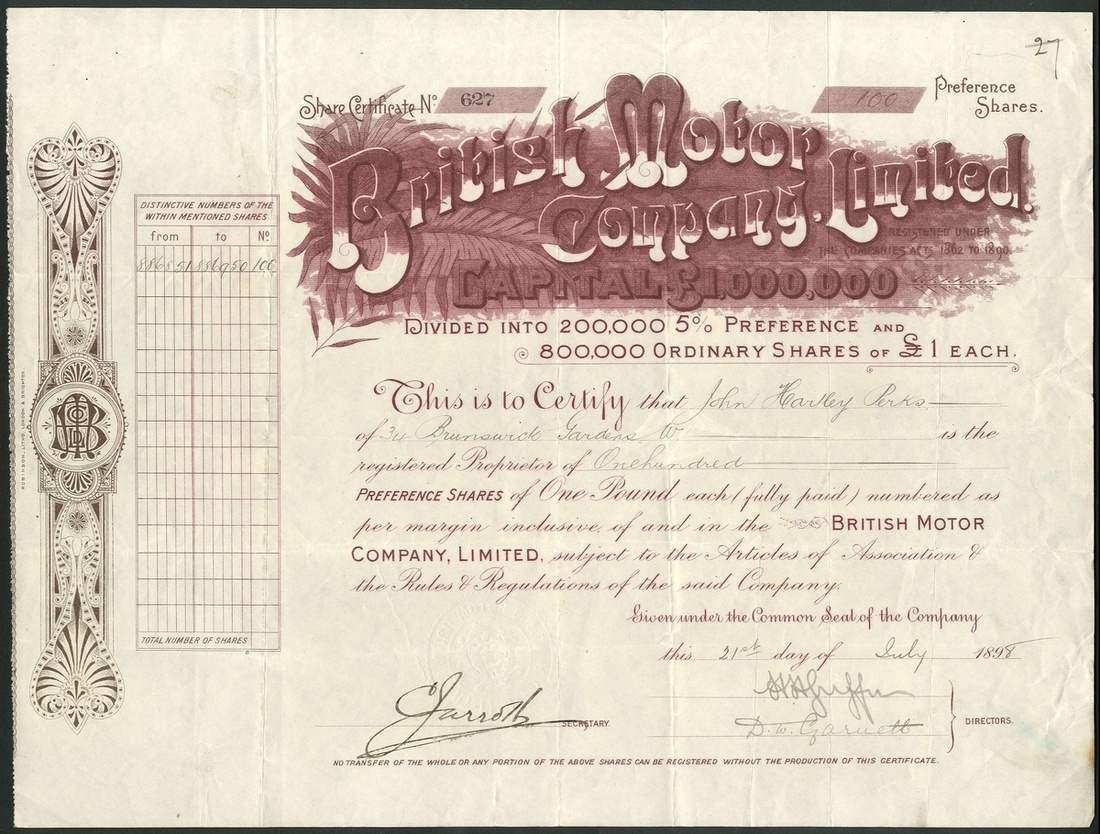 27
Share Certificate No 627
100 Preference Shares.
British Motor Company, Limited.
REGISTERED UNDER
THE COMPANIES ACTS 1862 TO 1890.
CAPITAL £1,000,000
DIVIDED INTO 200,000 5% PREFERENCE AND
800,000 ORDINARY SHARES OF £1 EACH.
DISTINCTIVE NUMBERS OF THE
WITHIN MENTIONED SHARES
from to No
886851 886950 100
TOTAL NUMBER OF SHARES
ROBINSON, LITHO. LONDON & BRIGHTON.
This is to Certify that John Harley Perks
of 34 Brunswick Gardens W. is the
registered Proprietor of One hundred
PREFERENCE SHARES of One Pound each (fully paid) numbered as
per margin inclusive, of and in the BRITISH MOTOR
COMPANY, LIMITED, subject to the Articles of Association &
the Rules & Regulations of the said Company.
Given under the Common Seal of the Company
this 21st day of July 1898
C Jarrott SECRETARY.
D. W. Garnett
DIRECTORS.
NO TRANSFER OF THE WHOLE OR ANY PORTION OF THE ABOVE SHARES CAN BE REGISTERED WITHOUT THE PRODUCTION OF THIS CERTIFICATE.